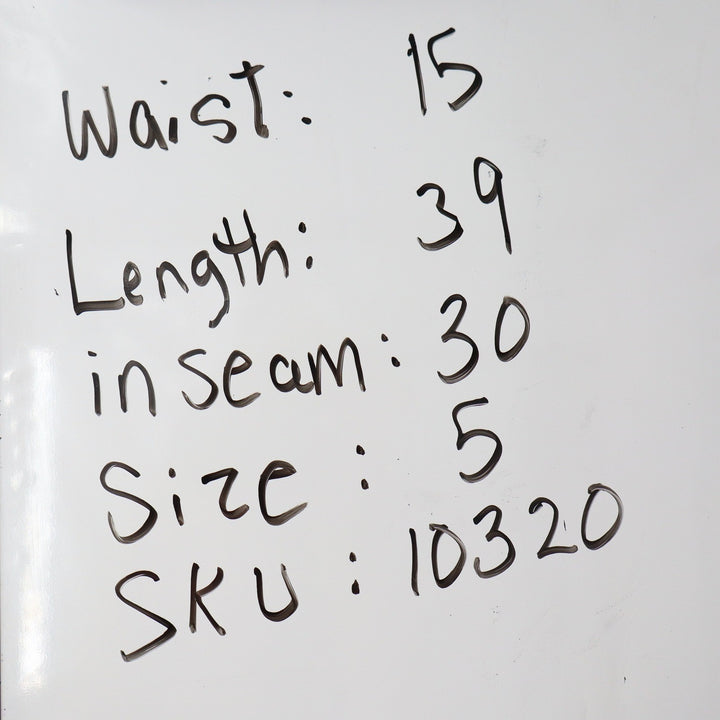 Waist: 15
Length: 39
inseam: 30
Size: 5
SKU: 10320